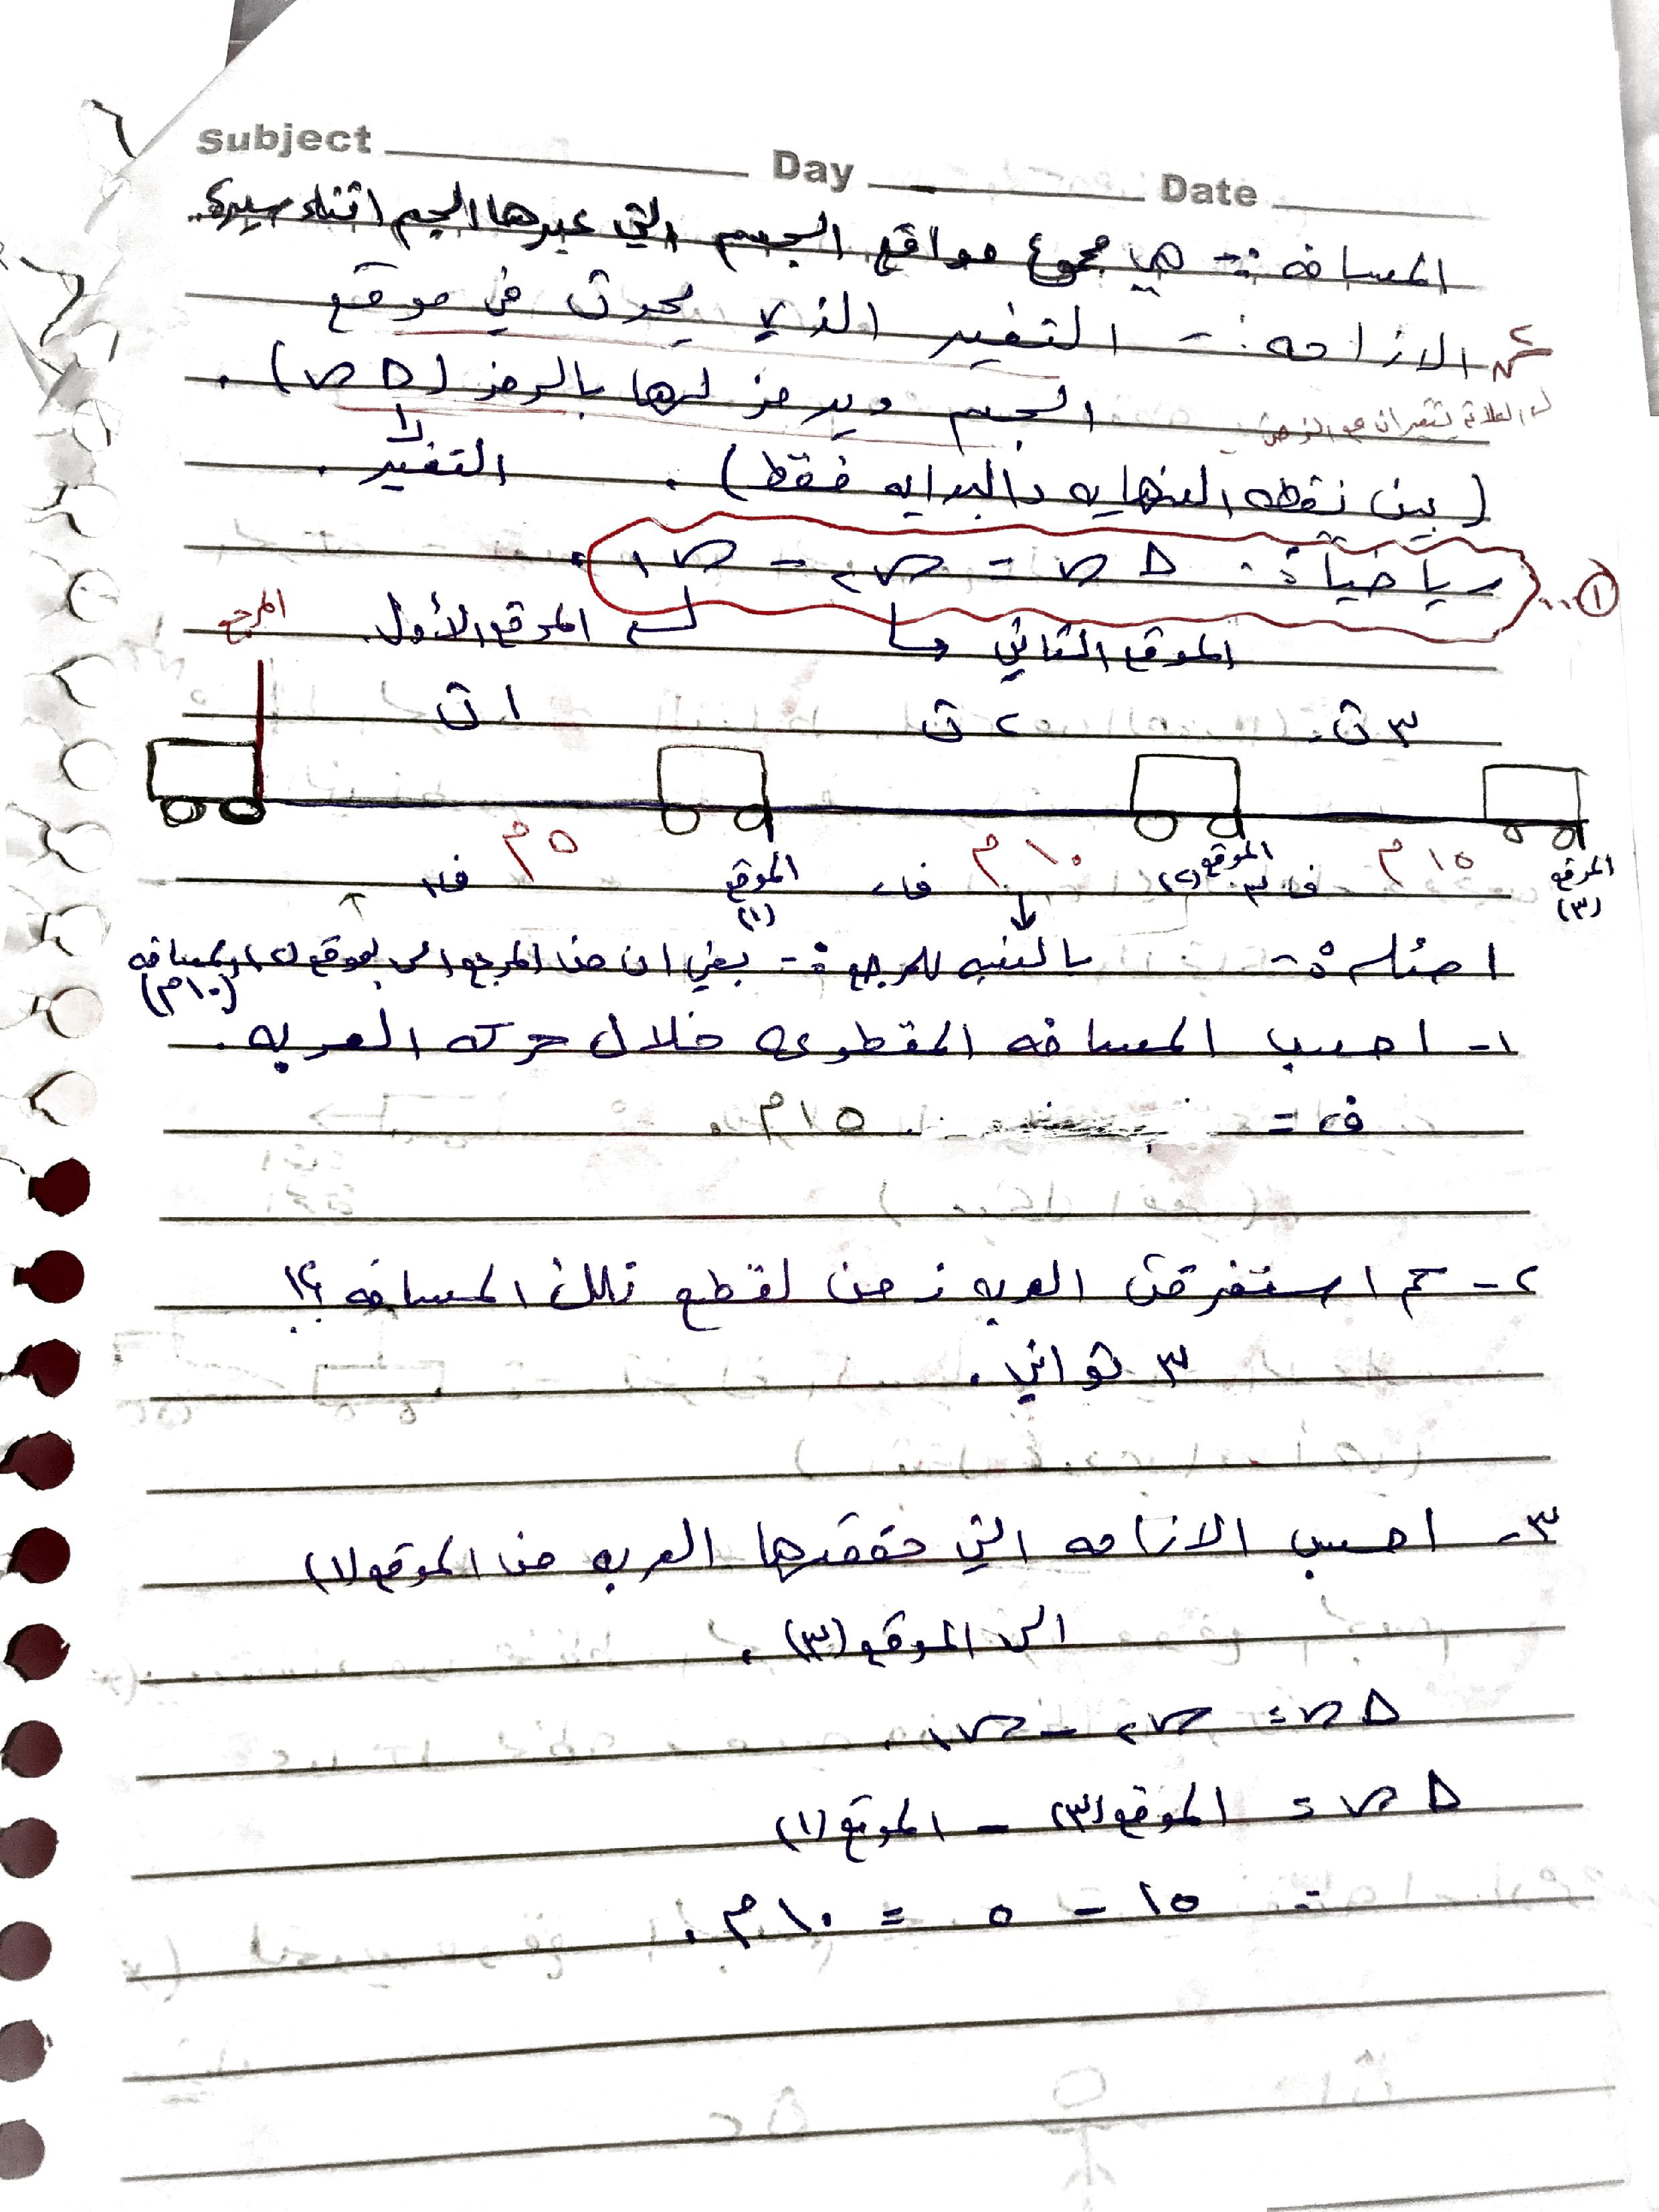 Subject Day Date
المسافه :- هي مجموع مواقع الجسم التي عبرها الجسم اثناء سيره.
الازاحه :- التغير الذي يحدث في موقع
الجسم ويرمز لها بالرمز (Δ س) .
التغير .
(بين نقطه النهايه والبدايه فقط) .
رياضياً : Δ س = س٢ - س١ . ...①
الموقع الثاني الموقع الأول .
المرجع
٣ ث . ٢ ث ١ ث
١٥ م ١٠ م ٥ م
الموقع (٣) ف٣ الموقع (٢) ف٢ الموقع (١) ف١
امثله :- بالنسبه للمرجع :- يعني ان من المرجع الى الموقع ٢ المسافه (١٠ م)
١- احسب المسافه المقطوعه خلال حركه العربه .
ف = ١٥ م .
٢- كم استغرقت العربه زمن لقطع تلك المسافه ؟!
٣ ثواني .
٣- احسب الازاحه التي حققتها العربه من الموقع (١)
الى الموقع (٣) .
Δ س = س٢ - س١ .
Δ س = الموقع (٣) - الموقع (١)
= ١٥ - ٥ = ١٠ م .